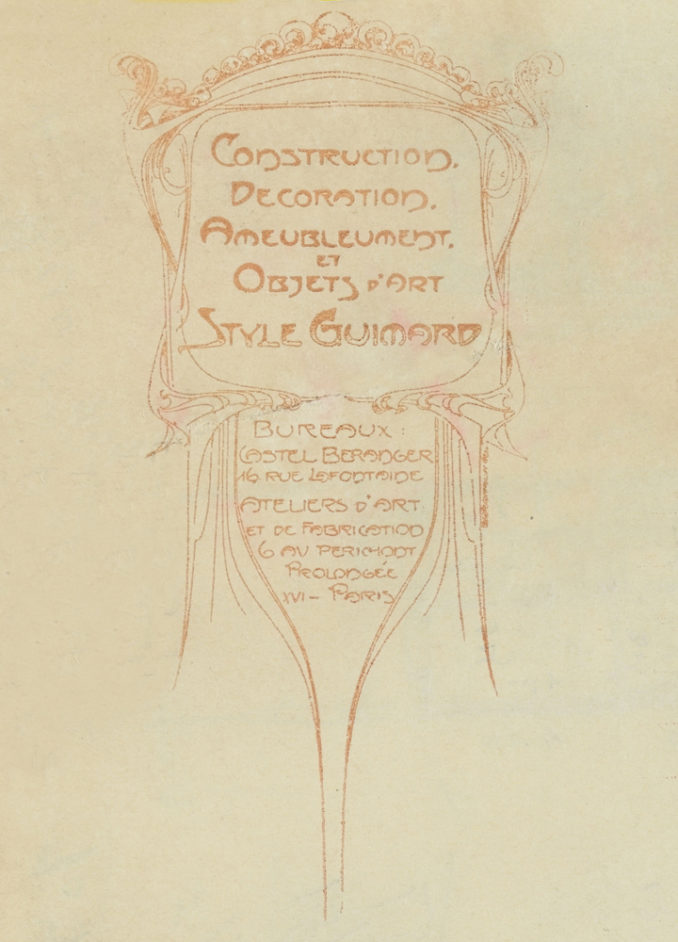 CONSTRUCTION.
DECORATION.
AMEUBLEUMENT.
ET
OBJETS D'ART
STYLE GUIMARD
BUREAUX :
CASTEL BERANGER
16 RUE LAFONTAINE
ATELIERS D'ART
ET DE FABRICATION
6 AV PERICHONT
PROLONGÉE
XVI – PARIS